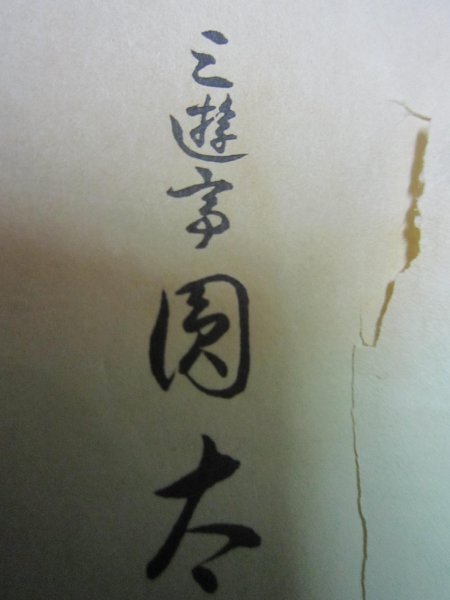 三遊亭圓太